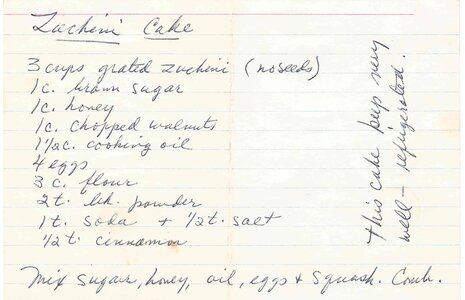 Zuchini Cake
3 cups grated zuchini (no seeds)
1c. brown sugar
1c. honey
1c. chopped walnuts
1 1/2c. cooking oil
4 eggs
3 c. flour
2 t. bk. powder
1 t. soda + 1/2 t. salt
1/2 t. cinnamon
Mix sugar, honey, oil, eggs + squash. Comb.
This cake keep very
well - refrigerated.